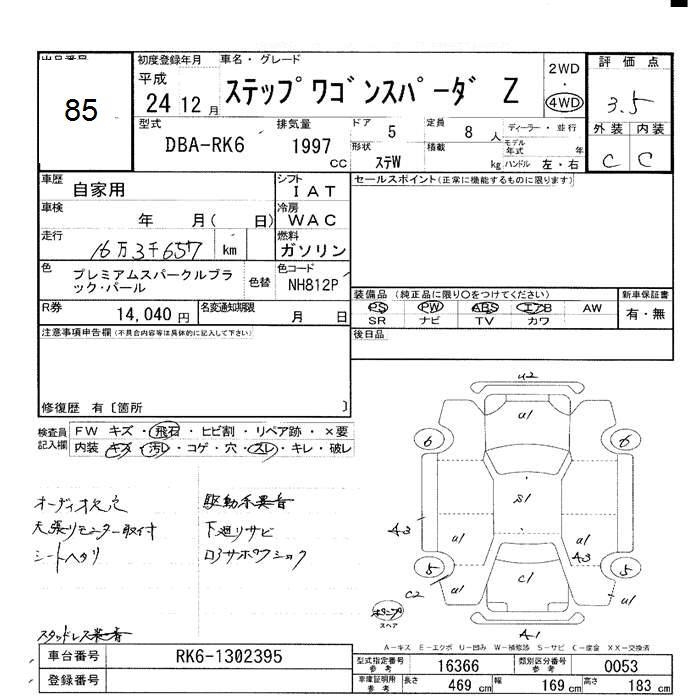 出品番号
85
初度登録年月
平成 24 12 月
車名・グレード
ステップワゴンスパーダ Z
2WD
・
4WD
評価点
3.5
型式
DBA-RK6
排気量
1997 CC
ドア 5
形状 ステW
定員 8 人
積載 kg
ディーラー・並行
モデル年式 年
ハンドル 左・右
外装 内装
C C
車歴 自家用
シフト IAT
車検 年 月( 日)
冷房 WAC
走行 16万3千657 km
燃料 ガソリン
色 プレミアムスパークルブラック・パール
色替
色コード NH812P
R券 14,040 円
名変通知期限 月 日
セールスポイント(正常に機能するものに限ります)
装備品 (純正品に限り○をつけてください)
PS PW ABS エアB AW
SR ナビ TV カワ
新車保証書
有・無
後日品
注意事項申告欄(不具合内容等は具体的に記入して下さい)
修復歴 有〔箇所 〕
検査員記入欄
FW キズ・飛石・ヒビ割・リペア跡・×要
内装 キズ・汚レ・コゲ・穴・スレ・キレ・破レ
オーディオ欠穴
天張りモニター取付
シートヘタリ
駆動系異音
下廻りサビ
スタッドレス装着
U2
U1
6
6
S1
A3
U1
U1
A3
5
5
C1
C2
U1
U1
A-1
スペア
A-キズ E-エクボ U-凹み W-補修跡 S-サビ C-腐食 XX-交換済
車台番号 RK6-1302395
登録番号
型式指定番号 参考 16366
類別区分番号 参考 0053
車庫証明用 参考 長さ 469 cm 幅 169 cm 高さ 183 cm